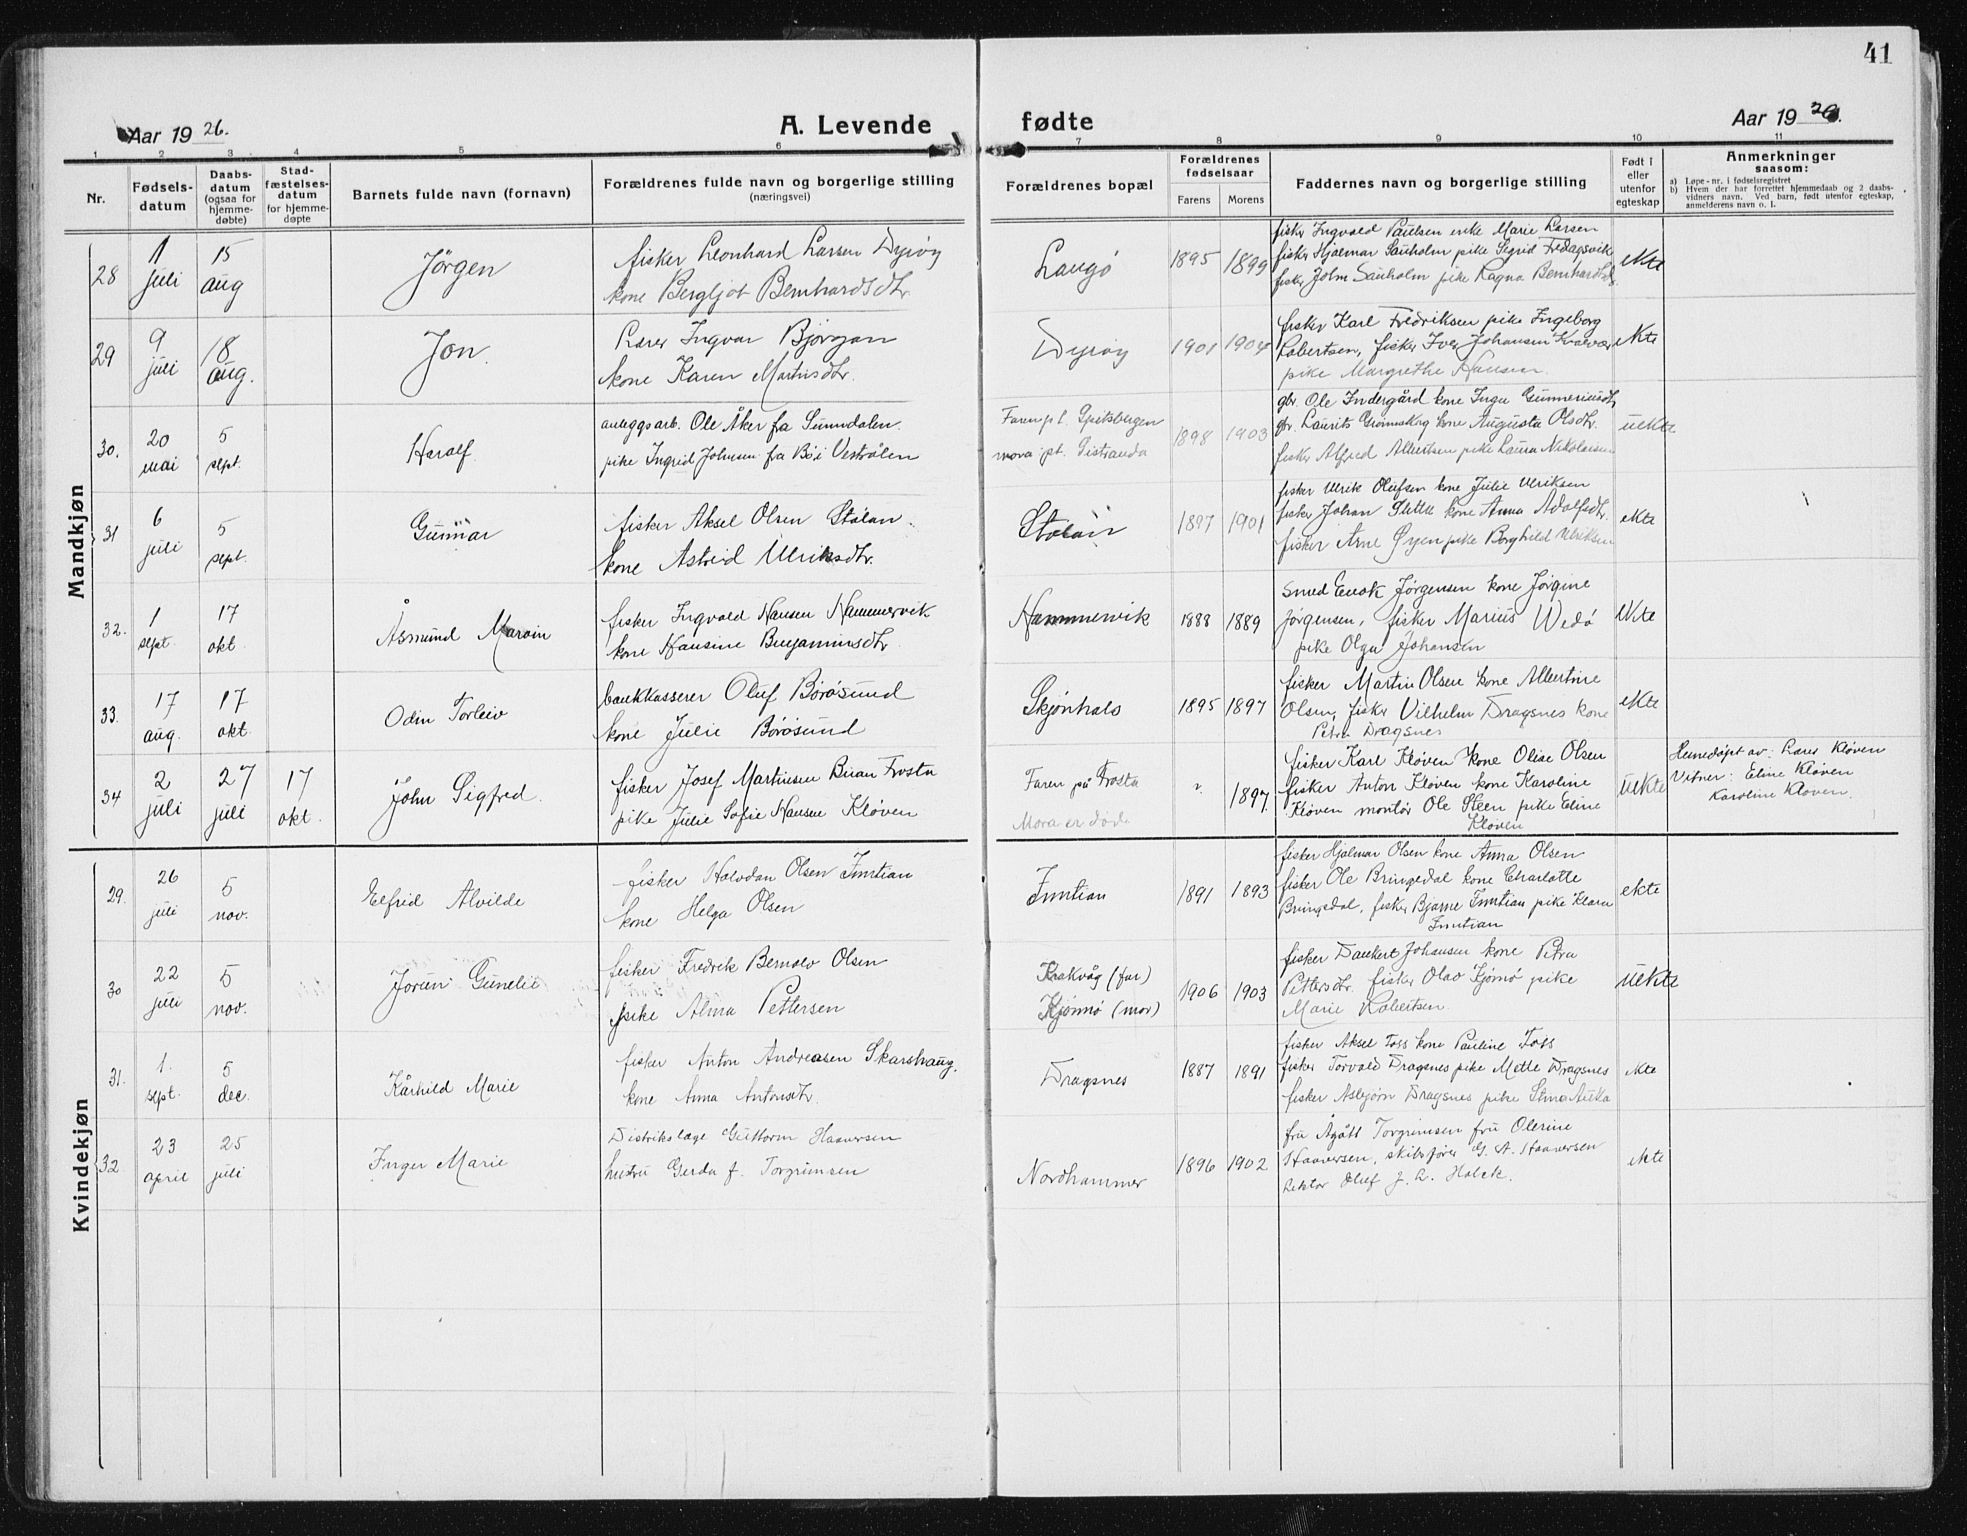 41
Aar 1926.
A. Levende fødte
Aar 1926.
1 2 3 4 5 6 7 8 9 10 11
Nr.
Fødsels-
datum
Daabs-
datum
(ogsaa for
hjemme-
døbte)
Stad-
fæstelses-
datum
for hjemme-
døpte
Barnets fulde navn (fornavn)
Forældrenes fulde navn og borgerlige stilling
(næringsvei)
Forældrenes bopæl
Forældrenes
fødselsaar
Farens Morens
Faddernes navn og borgerlige stilling
Født i
eller
utenfor
egteskap
Anmerkninger
saasom:
a) Løpe-nr. i fødselsregistret
b) Hvem der har forrettet hjemmedaab og 2 daabs-
vidners navn. Ved barn, født utenfor egteskap,
anmelderens navn o. l.
Mandkjøn
28
1
juli
15
aug
Jörgen
fisker Leonhard Larsen Dyrøy
kone Bergljot Bernhardsdtr.
Langö
1895 1899
fisker Ingvald Paulsen enke Marie Larsen
fisker Hjalmar Sauholm pike Sigrid Fredagsvik
fisker John Sauholm pike Ragna Bernhardtsd.
ekte
29
9
juli
18
aug.
Jon.
Lærer Ingvar Björgan
kone Karen Martinsdtr.
Dyrøy
1901 1904
fisker Karl Fredriksen pike Ingeborg
Robertsen, fisker Iver Johansen Kvalvær
pike Margrethe Hansen.
ekte
30.
20
mai
5
sept.
Haralf.
anleggsarb. Ole Åker fra Sunndalen.
pike Ingrid Johnsen fra Böi Vestrålen
Faren p.t. Spitsbergen
mora pt. Sistranda
1898 1903
gbr. Ole Indergård kone Inga Gunneriusdtr
gbr. Laurits Grönskag kone Augusta Olsdtr.
fisker Alfred Albertsen pike Laura Nikolaisen
uekte
31
6
juli
5
sept.
Gunnar
fisker Aksel Olsen Stölan
kone Astrid Ulriksdtr.
Stölan
1897 1901
fisker Ulrik Olufsen kone Julie Ulriksen
fisker Johan Slette kone Anna Adolfsdtr.
fisker Arne Øyen pike Borghild Ulriksen
ekte
32.
1
sept.
17
okt.
Åsmund Marvin
fisker Ingvald Hansen Hammervik
kone Hansine Benjaminsdtr.
Hammervik
1888 1889
Smed Enok Jörgensen kone Jörgine
Jörgensen, fisker Marius Wedö
pike Olga Johansen
ekte
33.
17
aug.
17
okt.
Odin Torleiv
bankkasserer Oluf Börösund
kone Julie Börösund
Skjönhals
1895 1897
fisker Martin Olsen kone Albertine
Olsen, fisker Vilhelm Dragsnes kone
Petra Dragsnes
ekte
34
2
juli
27
juli
17
okt.
John Sigfred.
fisker Josef Martinsen Buan Frosta
pike Julie Sofie Hansen Klöven
Faren på Frosta
Mora er död
? 1897.
fisker Karl Klöven kone Olise Olsen
fisker Anton Klöven kone Karoline
Klöven montör Ole Steen pike Eline
Klöven
uekte
Hemedöpt av: Lærer Klöven
Vitner: Eline Klöven
Karoline Klöven.
Kvindekjøn
29.
26
juli
5
nov.
Elfrid Alvilde
fisker Halvdan Olsen Inntian
kone Helga Olsen
Inntian
1891 1893
fisker Hjalmar Olsen kone Anna Olsen
fisker Ole Bringedal kone Charlotte
Bringedal, fisker Bjarne Inntian pike Klara
Inntian
ekte
30
22
juli
5
nov.
Jorun Gunelie
fisker Fredrik Bernolv Olsen
pike Alma Pettersen
Krakvåg (far)
Kjönnö (mor)
1906 1903
fisker Dankert Johansen kone Petra
Pettersdtr. fisker Olav Kjönnö pike
Marie Robertsen.
uekte
31.
1.
sept.
5
dec.
Kårhild Marie
fisker Anton Andreasen Skarshaug.
kone Anna Antonsdtr.
Dragsnes
1887 1891
fisker Aksel Foss kone Pauline Foss
fisker Torvald Dragsnes pike Mette Dragsnes
fisker Asbjørn Dragsnes pike Stina Auka
ekte
32
23
april
25
juli
Inger Marie
Distriktslæge Guttorm Haaversen
hustru Gerda f. Torgrimsen
Nordhammer
1896 1902
fru Ågått Torgrimsen fru Olerine
Haaversen, skibsfører G. A. Haaversen
Lektor Oluf J. L. Holck.
ekte